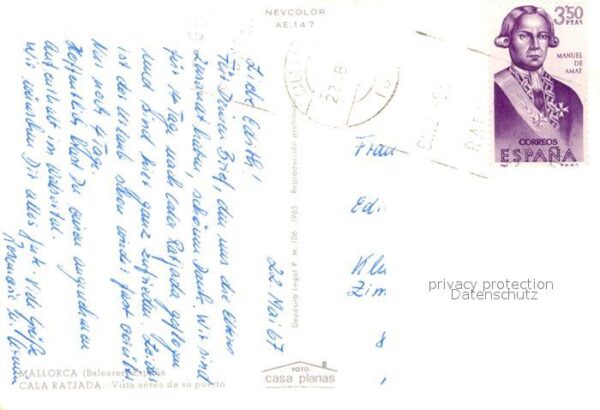 NEVCOLOR
AE.147
3'50
PTAS
MANUEL
DE
AMAT
CORREOS
ESPAÑA
22. Mai 67
Liebe Edith!
Für Deinen Brief, den uns die Eltern
schönen Dank. Wir sind
für 14 Tage nach Cala Ratjada geflogen
und sind hier ganz zufrieden. Leider
ist der Urlaub schon wieder fast vorüber
Nur noch 4 Tage.
Hoffentlich hast Du einen angenehmen
Aufenthalt im
Wir wünschen Dir alles gute. Viele Grüße
Rosmarie u.
Frau
Edi
Zim
Depósito Legal P. M. 106 1965 - Reproducción
privacy protection
Datenschutz
FOTO
casa planas
MALLORCA (Baleares) España
CALA RATJADA - Vista aérea de su puerto